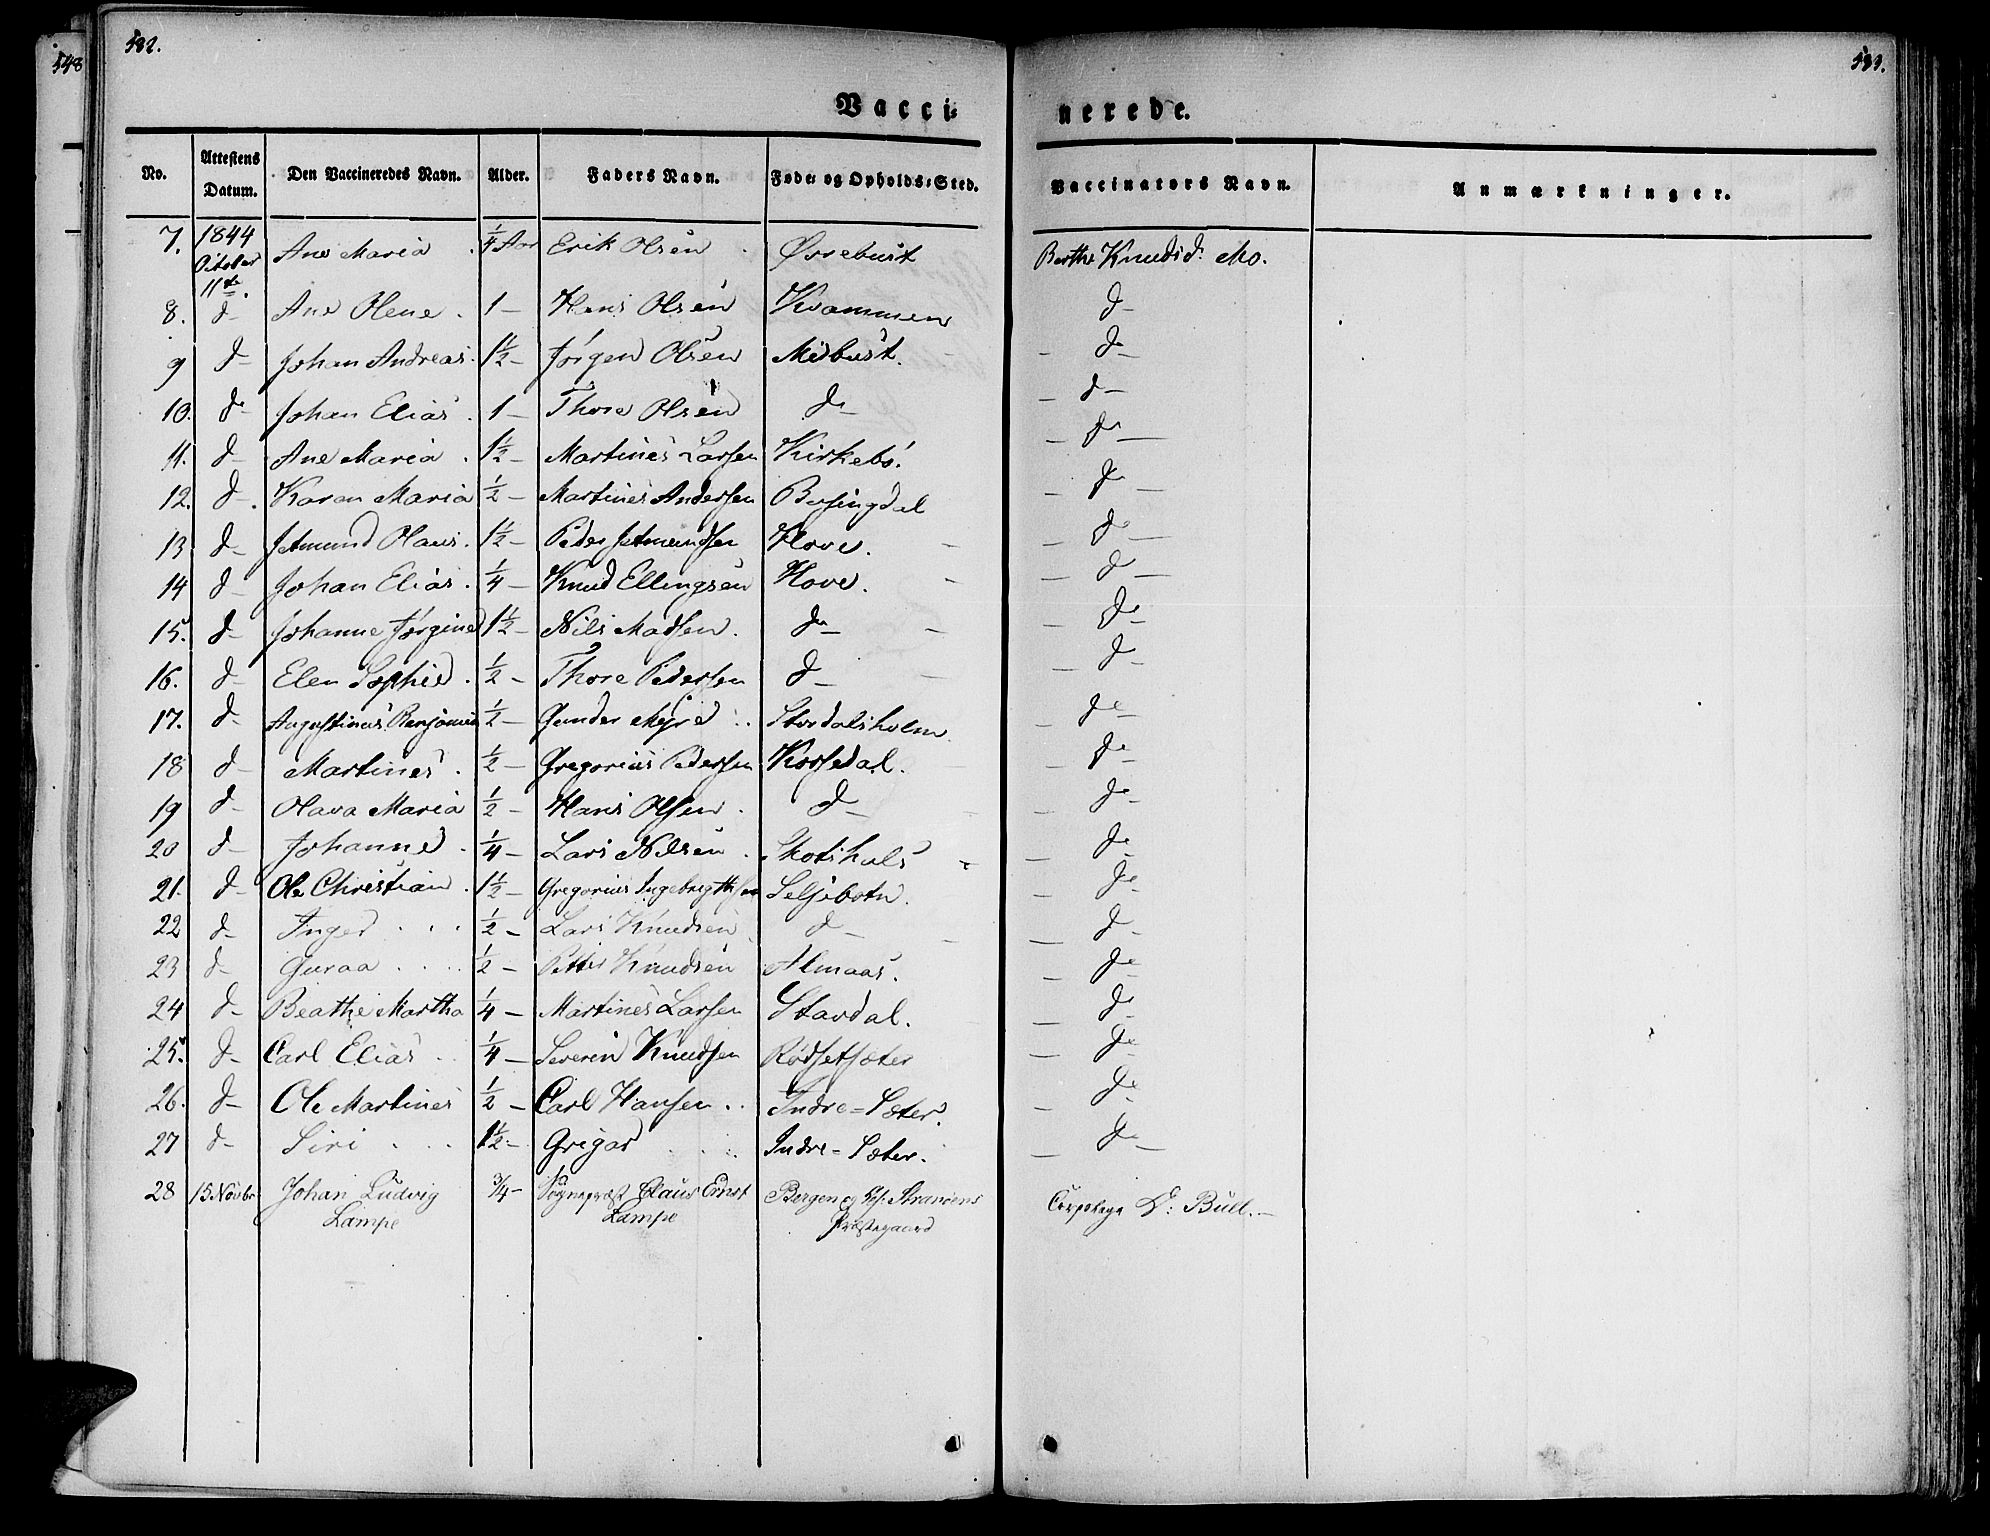 532.
533.
548
Vacci-
nerede.
No.
Attestens Datum.
Den Vaccineredes Navn.
Alder.
Faders Navn.
Føde- og Opholds-Sted.
Vaccinators Navn.
Anmærkninger.
7. 1844 October 11te. Ane Maria . 1/4 Aar Erik Olsen . Øvrebust Berthe Knudsd: Mo.
8. d- Ane Olene . 1 - Hans Olsen Kvammen d-
9 d- Johan Andreas . 1 1/2 - Jørgen Olsen Midbust. - d-
10. do- Johan Elias . 1 - Thore Olsen do- - d-
11. d- Ane Maria . 1 1/2 - Martines Larsen Kirkebø. - do-
12. d- Karen Maria 1/2 - Martines Andersen Besingdal - do-
13 d- Jetmund Olaus . 1 1/2 - Peder Jetmundsen Hove. - do-
14 d- Johan Elias . 1/4 - Knud Ellingsen Hove. - do-
15. d- Johanne Jørgine 1 1/2 - Nils Madsen. do- - do-
16. d- Elen Sophie . 1/2 - Thore Pedersen d- - d-
17. d- Augustinus Benjamin 1/2 - Gunder Myre .. Stordalsholm. - do-
18 d- Martines . 1/2 - Gregorius Pedersen Korsedal. - do-
19 d- Olava Maria 1/2 - Hans Olsen . d- - do-
20 d- Johanne . 1/4 - Lars Nilsen . Skotshals - do-
21. d- Ole Christian . 1 1/2 - Gregorius Ingebrigthsen Seljebotn. - do-
22 d- Inger . . . 1/2 - Lars Knudsen d- - d-
23 d- Guraa . . . . 1/2 - Petter Knudsen Almaas. - do-
24 d- Beathe Martha 1/4 - Martines Larsen Stavdal. - do-
25. d- Carl Elias . . 1/4 - Severin Knudsen Rødsetsæter - do-
26. d- Ole Martines 1/2 - Carl Hansen . . Indre-Sæter. - do-
27 d- Siri . . . 1 1/2 - Grigar . . . . Indre-Sæter. - do-
28 15 Novbr Johan Ludvig 3/4 - Sognepræst Claus Ernst Bergen og Strandens Corpslæge D: Bull. -
Lampe Lampe Præstegaard